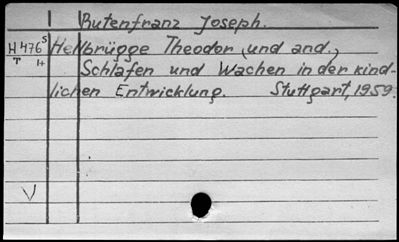 Butenfranz Joseph.
H 476 s Hellbrügge Theodor (und and.,
T H Schlafen und Wachen in der kind-
lichen Entwicklung. Stuttgart, 1959.
V